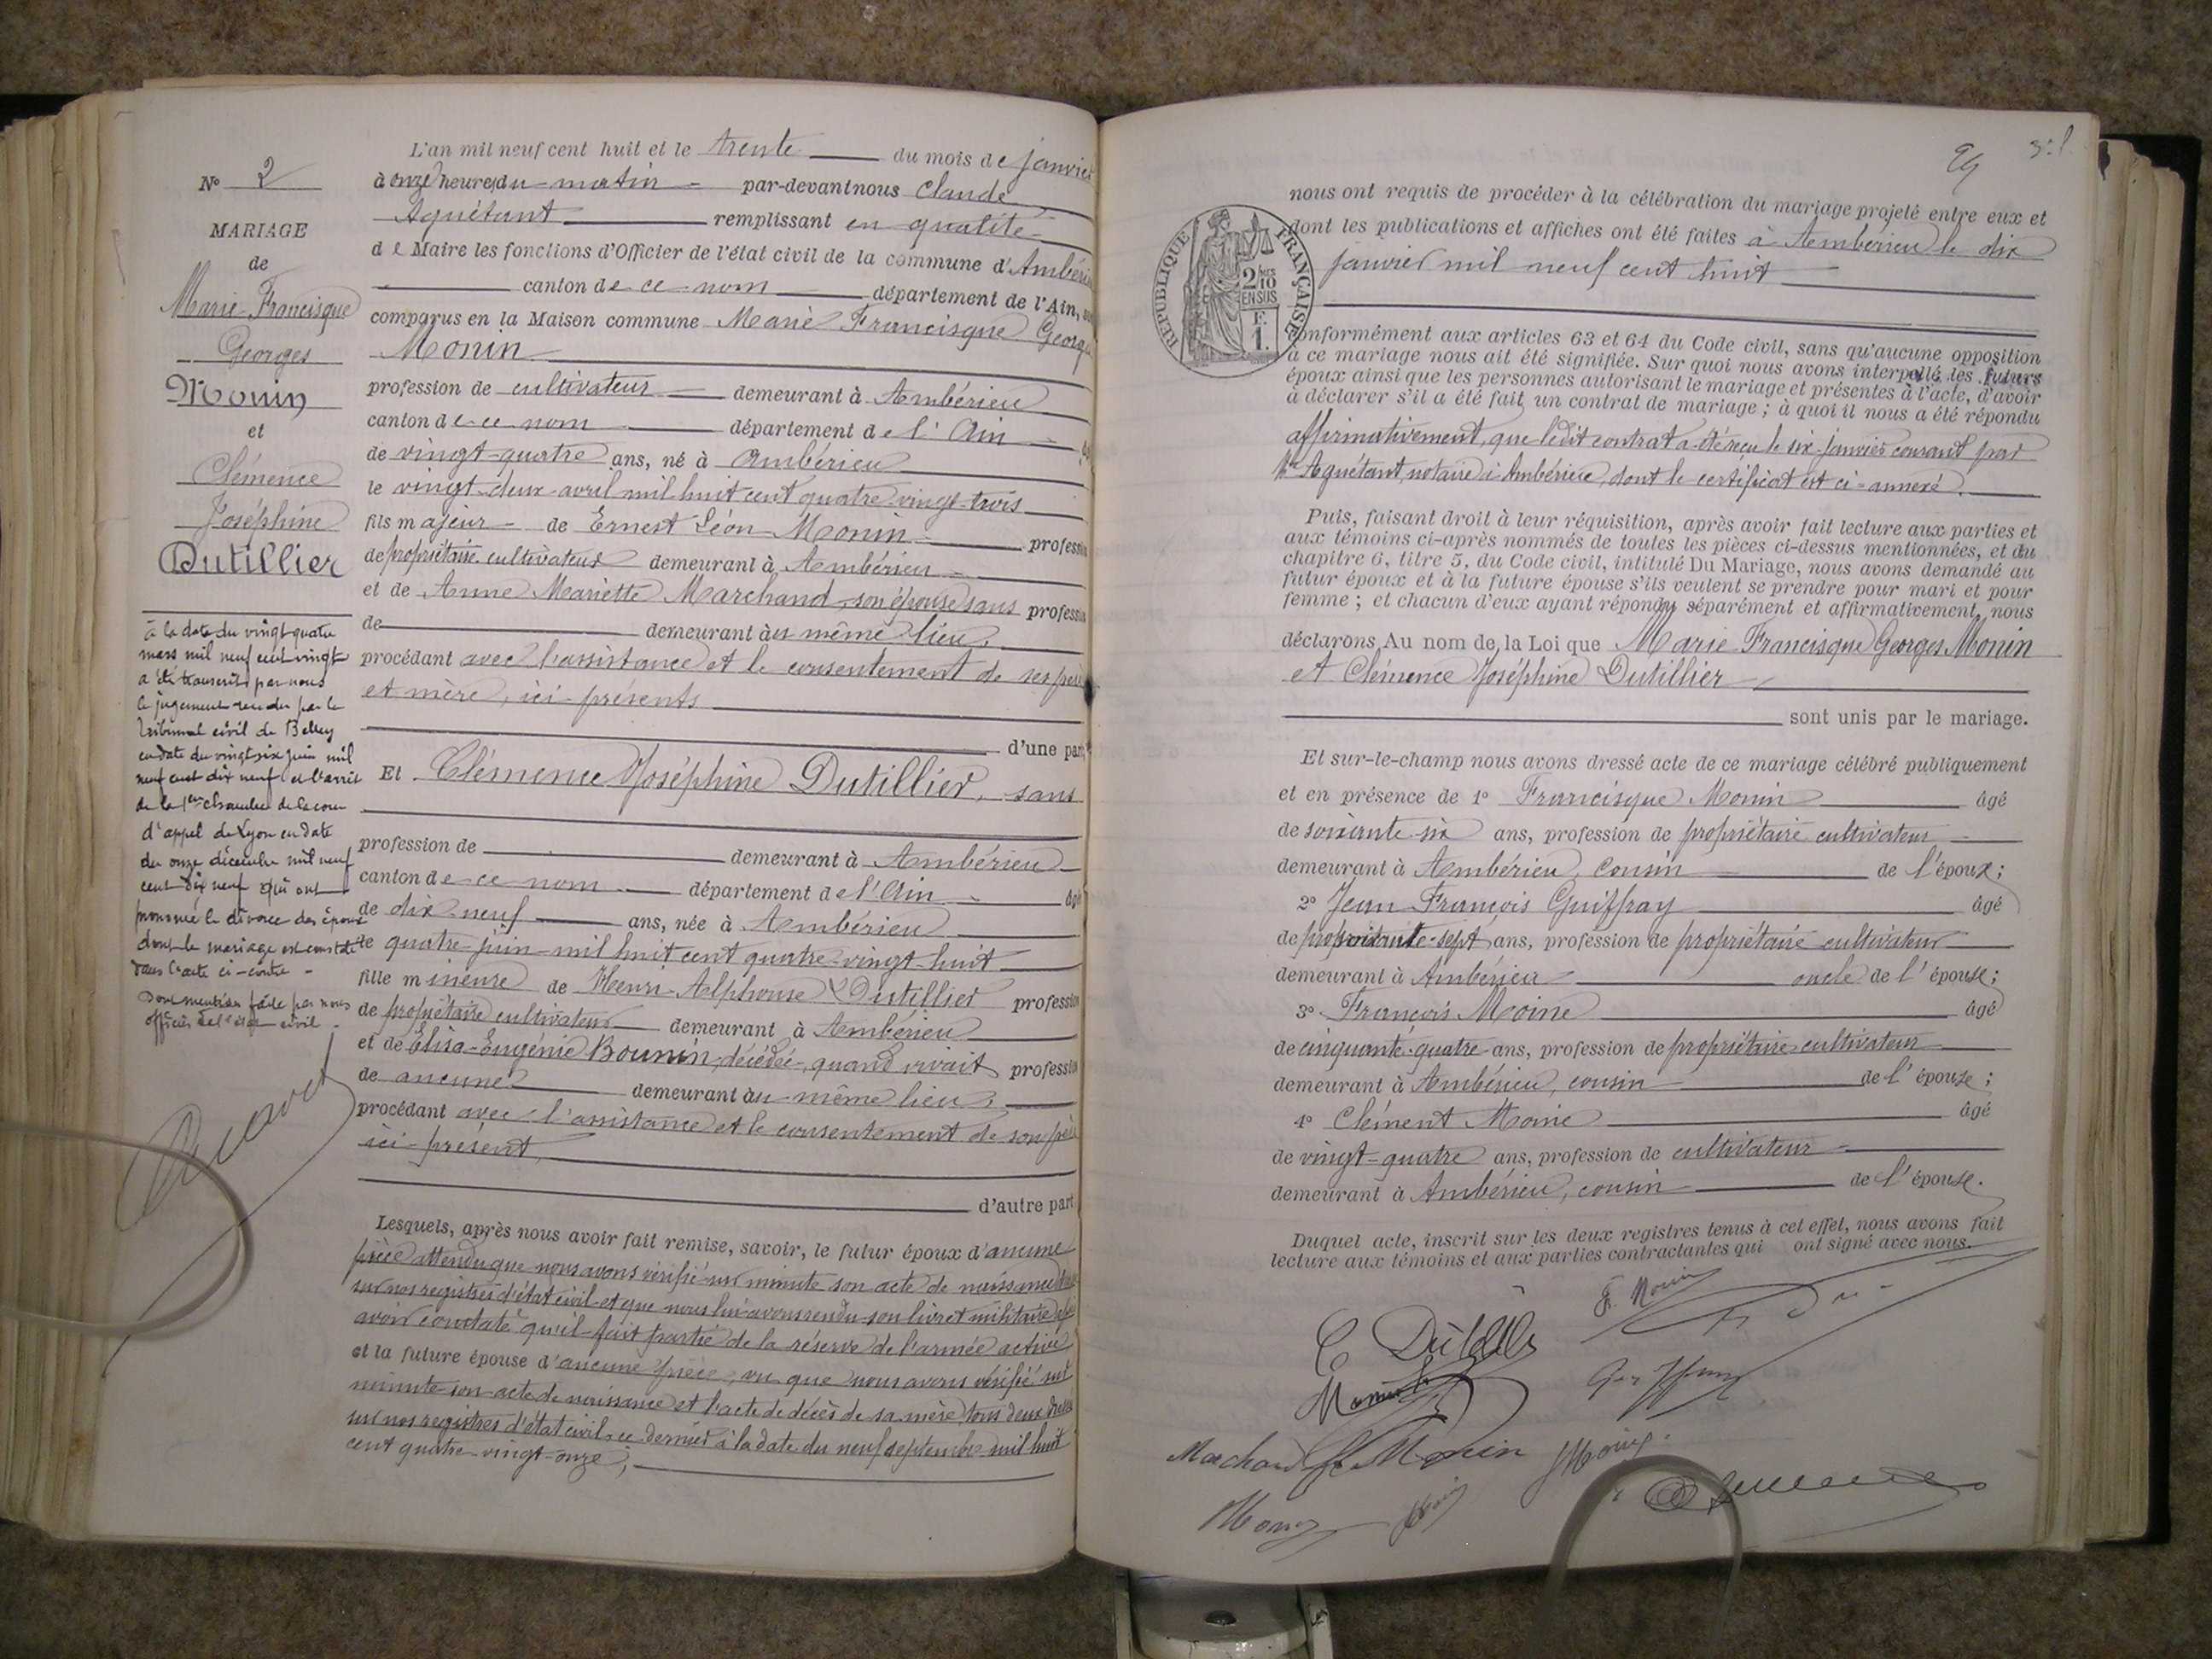 N° 2
MARIAGE
de
Marie-Francisque
Georges
Monin
et
Clémence
Joséphine
Dutillier
à la date du vingt quatre
mars mil neuf cent vingt
a été transcrit par nous
le jugement rendu par le
Tribunal civil de Belley
en date du vingt six juin mil
neuf cent dix neuf et l'arrêt
de la 1ère chambre de la cour
d'appel de Lyon en date
du onze décembre mil neuf
cent dix neuf qui ont
prononcé le divorce des époux
dont le mariage est constaté
dans l'acte ci-contre -
Dont mention faite par nous
officier de l'état civil.
L'an mil neuf cent huit et le trente du mois de janvier
à onze heures du matin par-devant nous Claude
Aguétant remplissant en qualité
de Maire les fonctions d'Officier de l'état civil de la commune d'Ambérieu
canton de ce nom département de l'Ain,
comparus en la Maison commune Marie Francisque Georges
Monin
profession de cultivateur demeurant à Ambérieu
canton de ce nom département de l'Ain
de vingt-quatre ans, né à Ambérieu
le vingt-deux avril mil huit cent quatre-vingt-trois
fils majeur de Ernest Léon Monin profession
de propriétaire cultivateur demeurant à Ambérieu
et de Anne Mariette Marchand, son épouse sans profession
de demeurant au même lieu,
procédant avec l'assistance et le consentement de ses père
et mère, ici-présents
d'une part
Et Clémence Joséphine Dutillier, sans
profession de demeurant à Ambérieu
canton de ce nom département de l'Ain âgé
de dix-neuf ans, née à Ambérieu
le quatre juin mil huit cent quatre-vingt-huit
fille mineure de Henri-Alphonse Dutillier profession
de propriétaire cultivateur demeurant à Ambérieu
et de Élisa-Eugénie Bounin, décédée, quand vivait profession
de aucune demeurant au même lieu,
procédant avec l'assistance et le consentement de son père
ici-présent,
d'autre part
Lesquels, après nous avoir fait remise, savoir, le futur époux d'aucune
pièce attendu que nous avons vérifié sur minute son acte de naissance
sur nos registres d'état civil et que nous lui avons rendu son livret militaire
avoir constaté qu'il fait partie de la réserve de l'armée active
et la future épouse d'aucune pièce, vu que nous avons vérifié sur
minute son acte de naissance et l'acte de décès de sa mère, tous deux
sur nos registres d'état civil, ce dernier à la date du neuf septembre mil huit
cent quatre-vingt-onze;
29
nous ont requis de procéder à la célébration du mariage projeté entre eux et
dont les publications et affiches ont été faites à Ambérieu le dix
janvier mil neuf cent huit
RÉPUBLIQUE FRANÇAISE
2/10 EN SUS
F. 1.
conformément aux articles 63 et 64 du Code civil, sans qu'aucune opposition
à ce mariage nous ait été signifiée. Sur quoi nous avons interpellé les futurs
époux ainsi que les personnes autorisant le mariage et présentes à l'acte, d'avoir
à déclarer s'il a été fait un contrat de mariage; à quoi il nous a été répondu
affirmativement, que ledit contrat a été reçu le six janvier courant par
Me Aguétant notaire à Ambérieu, dont le certificat est ci-annexé.
Puis, faisant droit à leur réquisition, après avoir fait lecture aux parties et
aux témoins ci-après nommés de toutes les pièces ci-dessus mentionnées, et du
chapitre 6, titre 5, du Code civil, intitulé Du Mariage, nous avons demandé au
futur époux et à la future épouse s'ils veulent se prendre pour mari et pour
femme; et chacun d'eux ayant répondu séparément et affirmativement, nous
déclarons Au nom de la Loi que Marie Francisque Georges Monin
et Clémence Joséphine Dutillier,
sont unis par le mariage.
Et sur-le-champ nous avons dressé acte de ce mariage célébré publiquement
et en présence de 1° Francisque Monin âgé
de soixante-six ans, profession de propriétaire cultivateur
demeurant à Ambérieu, cousin de l'époux;
2° Jean François Guiffray âgé
ans, profession de propriétaire cultivateur
demeurant à Ambérieu oncle de l'épouse;
3° François Moine âgé
de cinquante-quatre ans, profession de propriétaire cultivateur
demeurant à Ambérieu, cousin de l'épouse;
4° Clément Moine âgé
de vingt-quatre ans, profession de cultivateur
demeurant à Ambérieu, cousin de l'épouse.
Duquel acte, inscrit sur les deux registres tenus à cet effet, nous avons fait
lecture aux témoins et aux parties contractantes qui ont signé avec nous.
F. Monin
Marchand
Monin